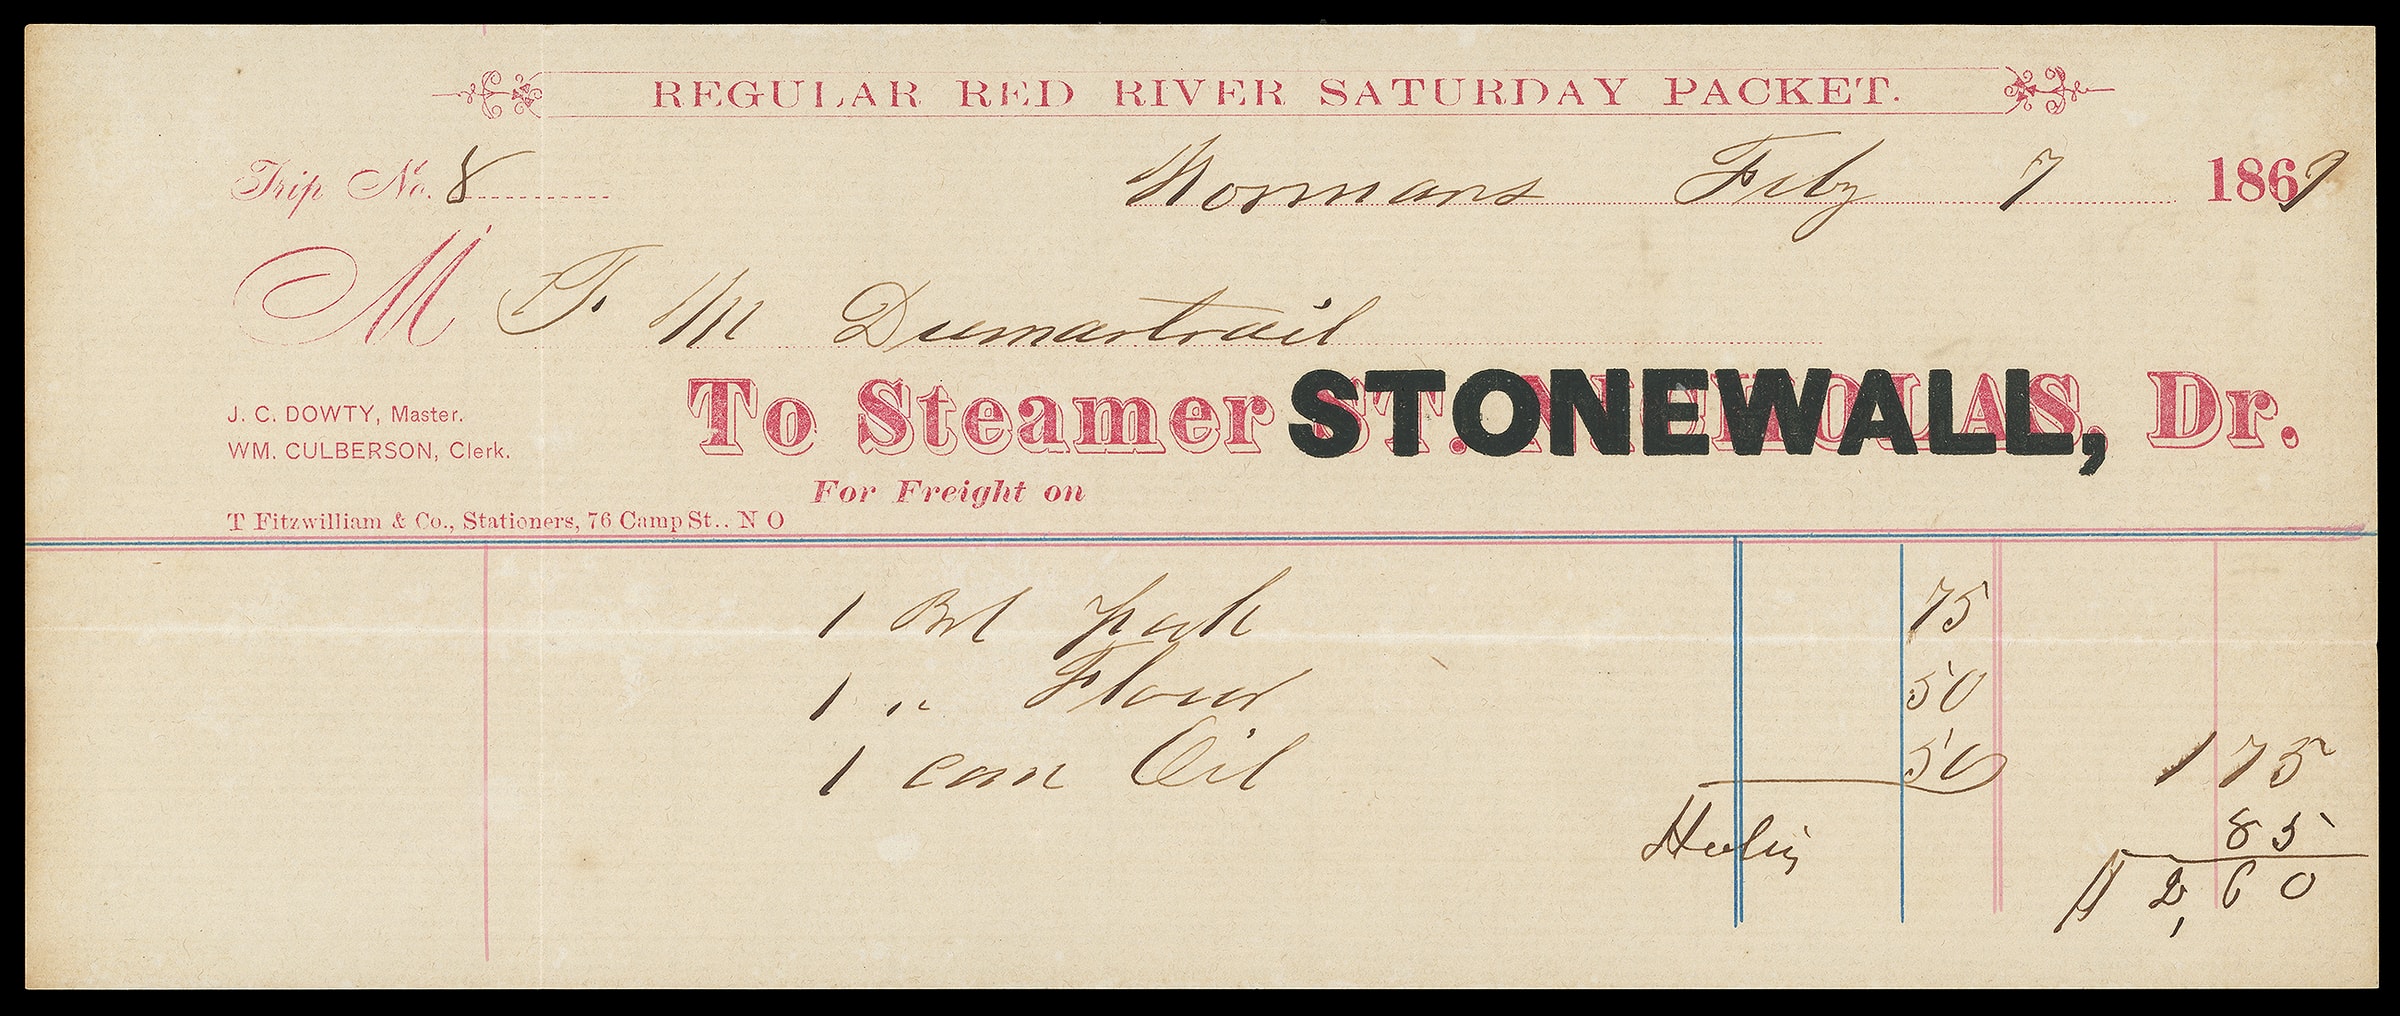 REGULAR RED RIVER SATURDAY PACKET.
Trip No. 8 Normans Feby 7 1869
M T. M Dumartrail
J. C. DOWTY, Master.
WM. CULBERSON, Clerk.
To Steamer STONEWALL, Dr.
For Freight on
T Fitzwilliam & Co., Stationers, 76 Camp St.. N O
1 Brl 75
1 " Flour 50
1 can Oil 50 1 75
85
$ 2,60